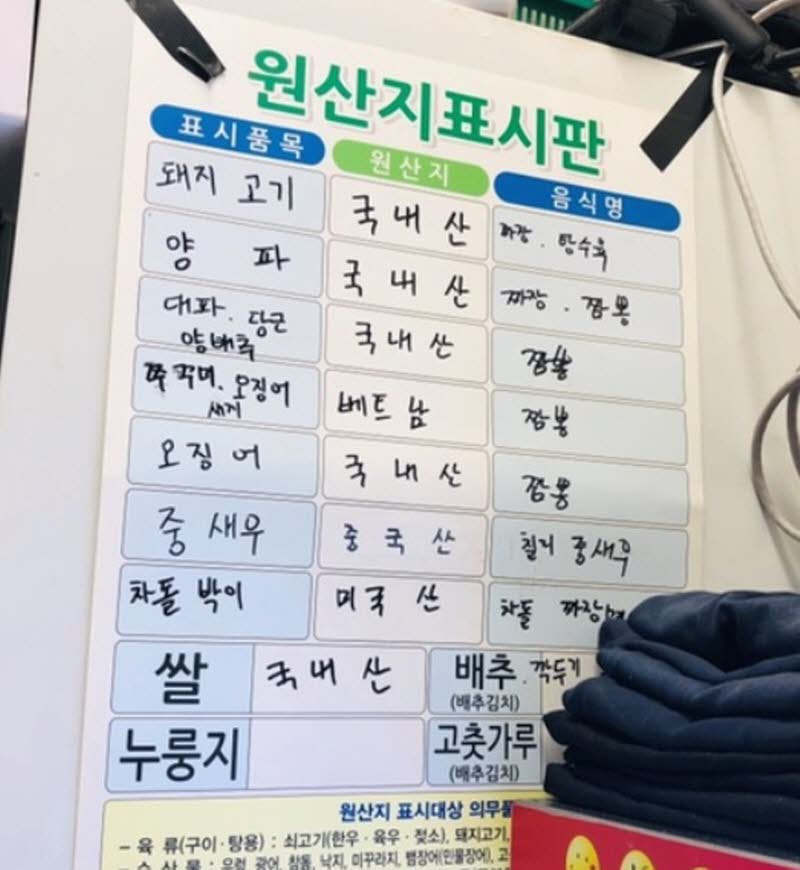 원산지표시판
표시품목 원산지 음식명
돼지 고기 국내산 짜장. 탕수육
양 파 국내산 짜장. 짬뽕
대파. 당근
양배추 국내산 짬뽕
쭈꾸미. 오징어
세끼 베트남 짬뽕
오징어 국내산 짬뽕
중새우 중국산 칠리 중새우
차돌 박이 미국산 차돌 짜장면
쌀 국내산 배추. 깍두기
(배추김치)
누룽지 고춧가루
(배추김치)
원산지 표시대상 의무품
- 육 류(구이·탕용) : 쇠고기(한우·육우·젖소), 돼지고기,
- 수 산 물 : 우럭, 광어, 참돔, 낙지, 미꾸라지, 뱀장어(민물장어), 고